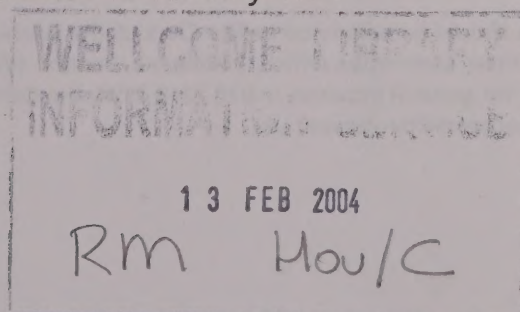 WELLCOME LIBRARY
INFORMATION SERVICE
13 FEB 2004
RM Hou/C